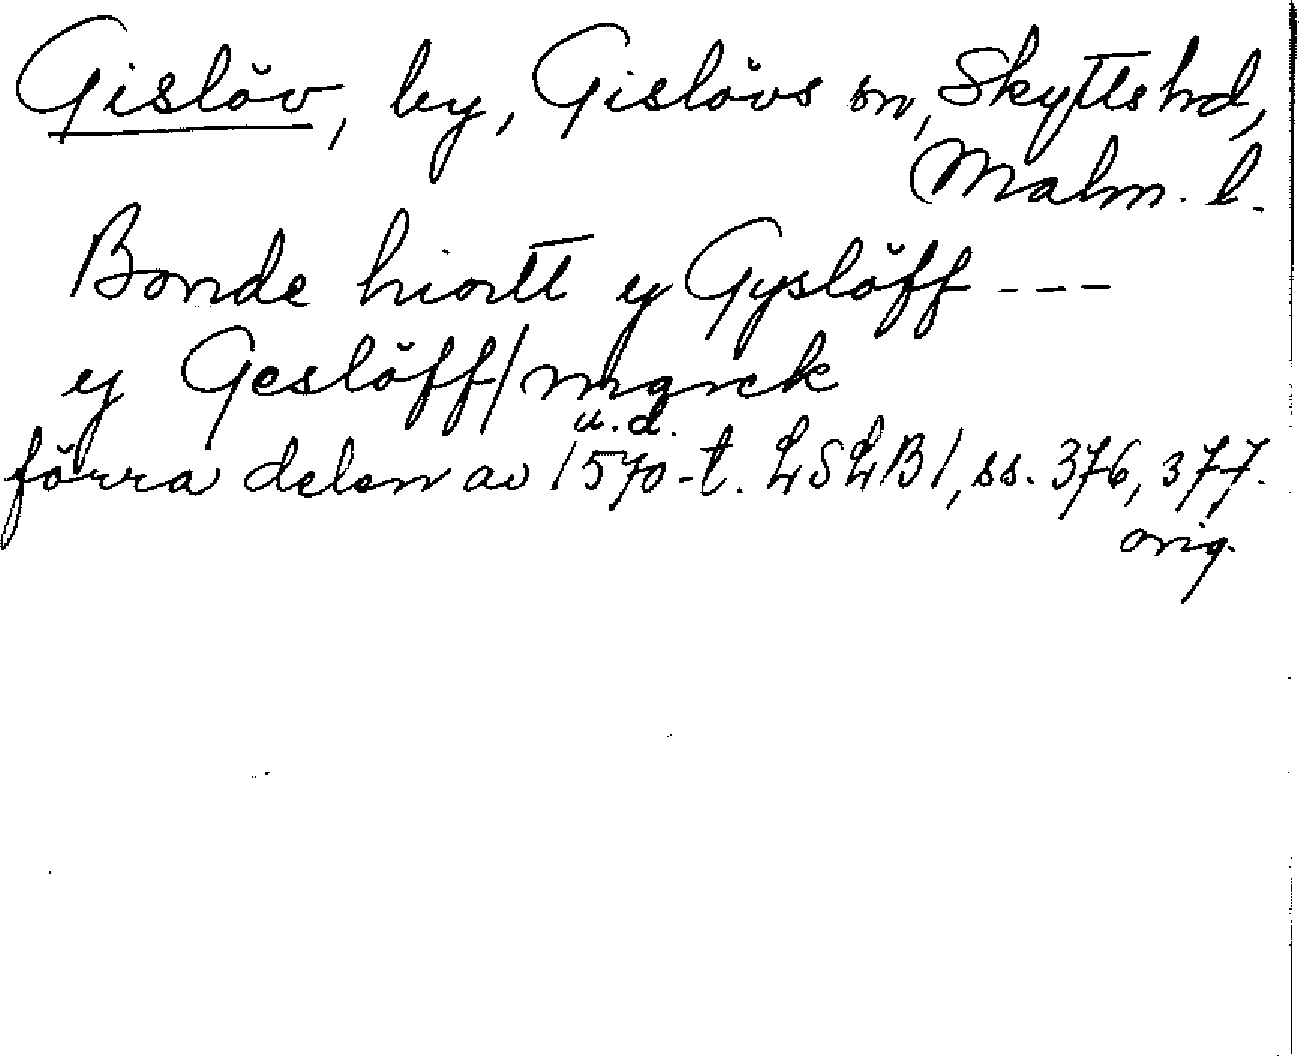 Gislöv, by, Gislövs sn, Skytts hd,
Malm. l.
Bonde hiortt y Gyslöff ---
y Geslöff/marck
u.d.
förra delen av 1570-t. LSLB1, ss. 376, 377.
orig.